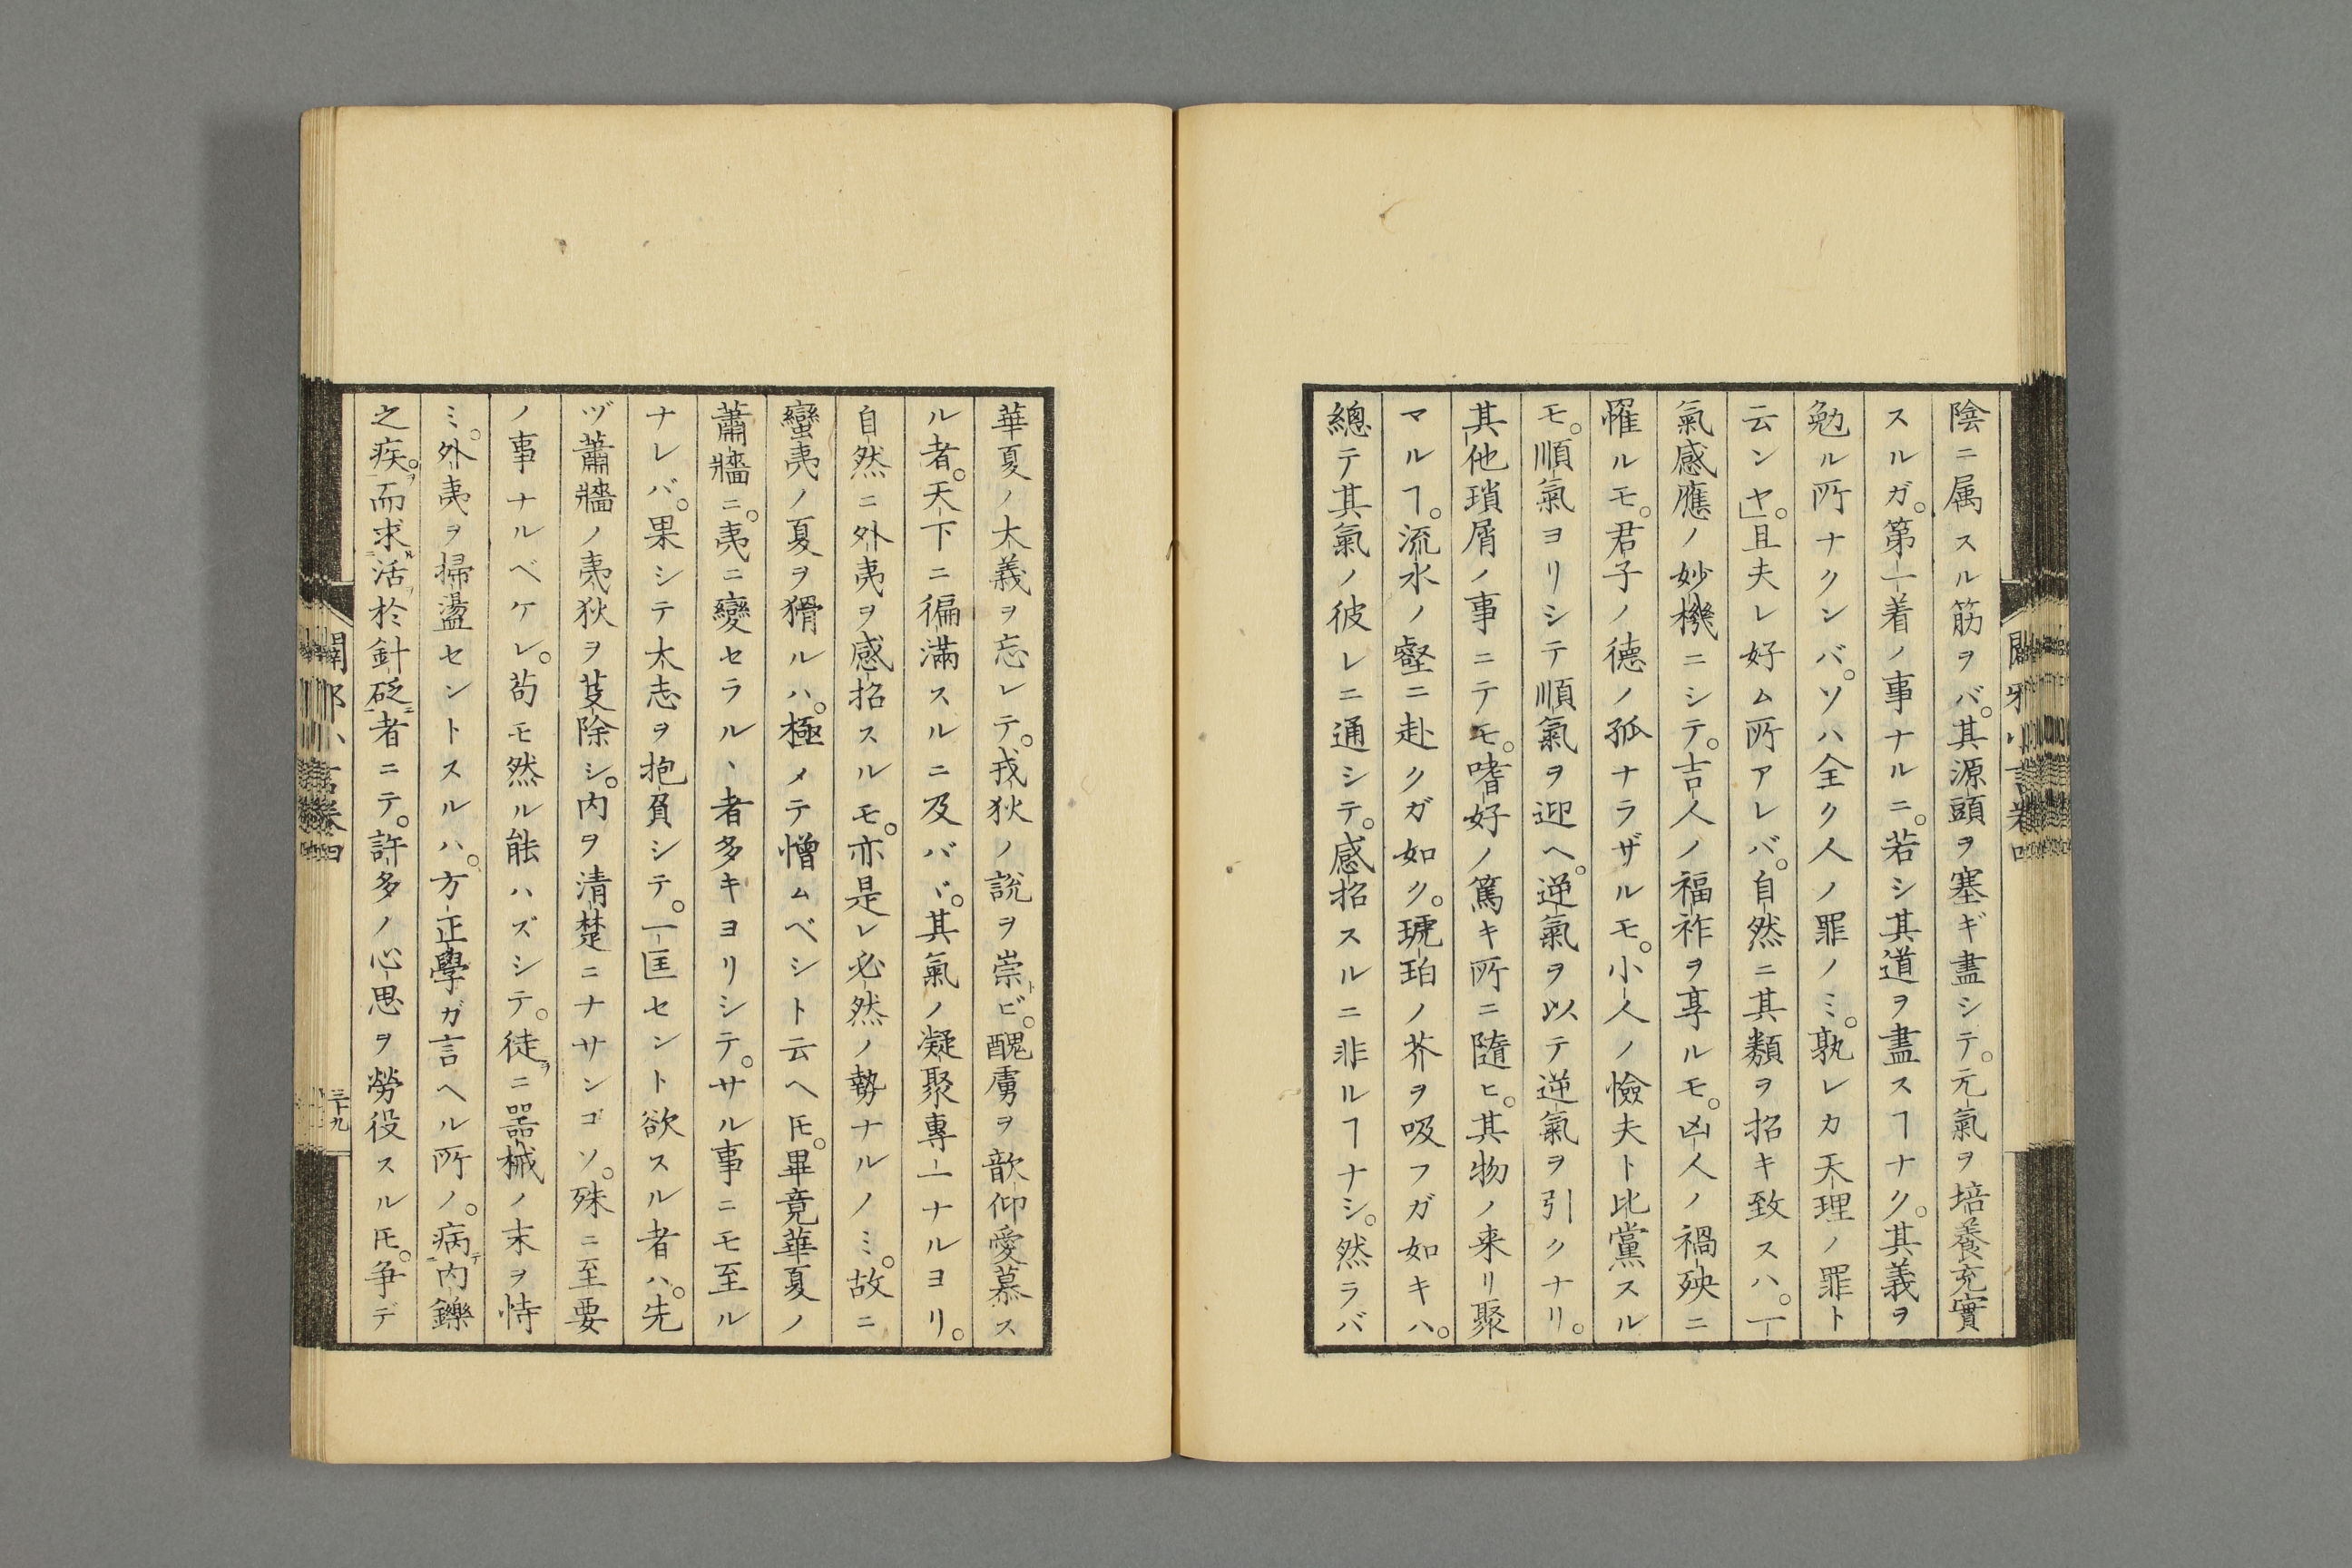 陰ニ属スル筋ヲバ。其源頭ヲ塞ギ盡シテ。元氣ヲ培養充實
スルガ。第一着ノ事ナルニ。若シ其道ヲ盡スヿナク。其義ヲ
勉ル所ナクンバ。ソハ全ク人ノ罪ノミ。孰レカ天理ノ罪ト
云ンヤ。」且夫レ好ム所アレバ。自然ニ其類ヲ招キ致スハ。一
氣感應ノ妙機ニシテ。吉人ノ福祚ヲ享ルモ。凶人ノ禍殃ニ
罹ルモ。君子ノ德ノ孤ナラザルモ。小人ノ憸夫ト比黨スル
モ。順氣ヨリシテ順氣ヲ迎ヘ。逆氣ヲ以テ逆氣ヲ引クナリ。
其他瑣屑ノ事ニテモ。嗜好ノ篤キ所ニ隨ヒ。其物ノ来リ聚
マルヿ。流水ノ壑ニ赴クガ如ク。琥珀ノ芥ヲ吸フガ如キハ。
總テ其氣ノ彼レニ通シテ。感招スルニ非ルヿナシ。然ラバ
華夏ノ大義ヲ忘レテ。戎狄ノ說ヲ崇ビ。醜虜ヲ歆仰愛慕ス
ル者。天下ニ徧滿スルニ及バヾ。其氣ノ凝聚專一ナルヨリ。
自然ニ外夷ヲ感招スルモ。亦是レ必然ノ勢ナルノミ。故ニ
蠻夷ノ夏ヲ猾ルハ。極メテ憎ムベシト云ヘ𪜈。畢竟華夏ノ
蕭牆ニ。夷ニ變セラルヽ者多キヨリシテ。サル事ニモ至ル
ナレバ。果シテ大志ヲ抱負シテ。一匡セント欲スル者ハ。先
ヅ蕭牆ノ夷狄ヲ芟除シ。内ヲ清楚ニナサンゴソ。殊ニ至要
ノ事ナルベケレ。苟モ然ル能ハズシテ。徒ニ器械ノ末ヲ恃
ミ。外夷ヲ掃盪セントスルハ。方正學ガ言ヘル所ノ。病内鑠
之疾。而求活於針砭者ニテ。許多ノ心思ヲ勞役スル𪜈。争デ
闢邪小言卷四
三十九